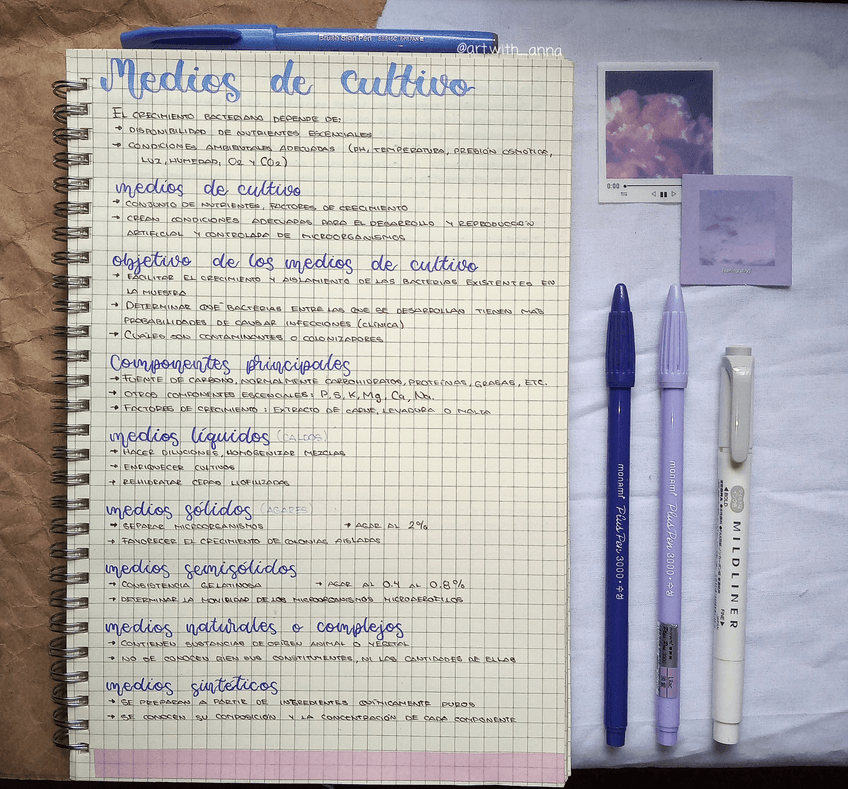 Brush Sign Pen
@artwith_anna
Medios de cultivo
EL CRECIMIENTO BACTERIANO DEPENDE DE:
→ DISPONIBILIDAD DE NUTRIENTES ESCENCIALES
→ CONDICIONES AMBIENTALES ADECUADAS (PH, TEMPERATURA, PRESIÓN OSMÓTICA,
LUZ, HUMEDAD, O2 Y CO2)
medios de cultivo
→ CONJUNTO DE NUTRIENTES, FACTORES DE CRECIMIENTO
→ CREAN CONDICIONES ADECUADAS PARA EL DESARROLLO Y REPRODUCCIÓN
ARTIFICIAL Y CONTROLADA DE MICROORGANISMOS
objetivo de los medios de cultivo
→ FACILITAR EL CRECIMIENTO Y AISLAMIENTO DE LAS BACTERIAS EXISTENTES EN
LA MUESTRA
→ DETERMINAR QUÉ BACTERIAS ENTRE LAS QUE SE DESARROLLAN TIENEN MAS
PROBABILIDADES DE CAUSAR INFECCIONES (CLÍNICA)
→ CUALES SON CONTAMINANTES O COLONIZADORES
Componentes principales
→ FUENTE DE CARBONO, NORMALMENTE CARBOHIDRATOS, PROTEÍNAS, GRASAS, ETC.
→ OTROS COMPONENTES ESCENCIALES: P, S, K, Mg, Ca, Na.
→ FACTORES DE CRECIMIENTO: EXTRACTO DE CARNE, LEVADURA O MALTA
medios líquidos (CALDOS)
→ HACER DILUCIONES, HOMOGENIZAR MEZCLAS
→ ENRIQUECER CULTIVOS
→ REHIDRATAR CEPAS LIOFILIZADAS
medios sólidos (AGARES)
→ SEPARAR MICROORGANISMOS → AGAR AL 2%
→ FAVORECER EL CRECIMIENTO DE COLONIAS AISLADAS
medios semisólidos
→ CONSISTENCIA GELATINOSA → AGAR AL 0.4 AL 0.8%
→ DETERMINAR LA MOVILIDAD DE LOS MICROORGANISMOS MICROAEROFILOS
medios naturales o complejos
→ CONTIENEN SUSTANCIAS DE ORIGEN ANIMAL O VEGETAL
→ NO SE CONOCEN BIEN SUS CONSTITUYENTES, NI LAS CANTIDADES DE ELLAS
medios sintéticos
→ SE PREPARAN A PARTIR DE INGREDIENTES QUÍMICAMENTE PUROS
→ SE CONOCEN SU COMPOSICIÓN Y LA CONCENTRACIÓN DE CADA COMPONENTE
0:00
monami Plus Pen 3000 · 수성
monami Plus Pen 3000 · 수성
BOLD
MILDLINER
FINE